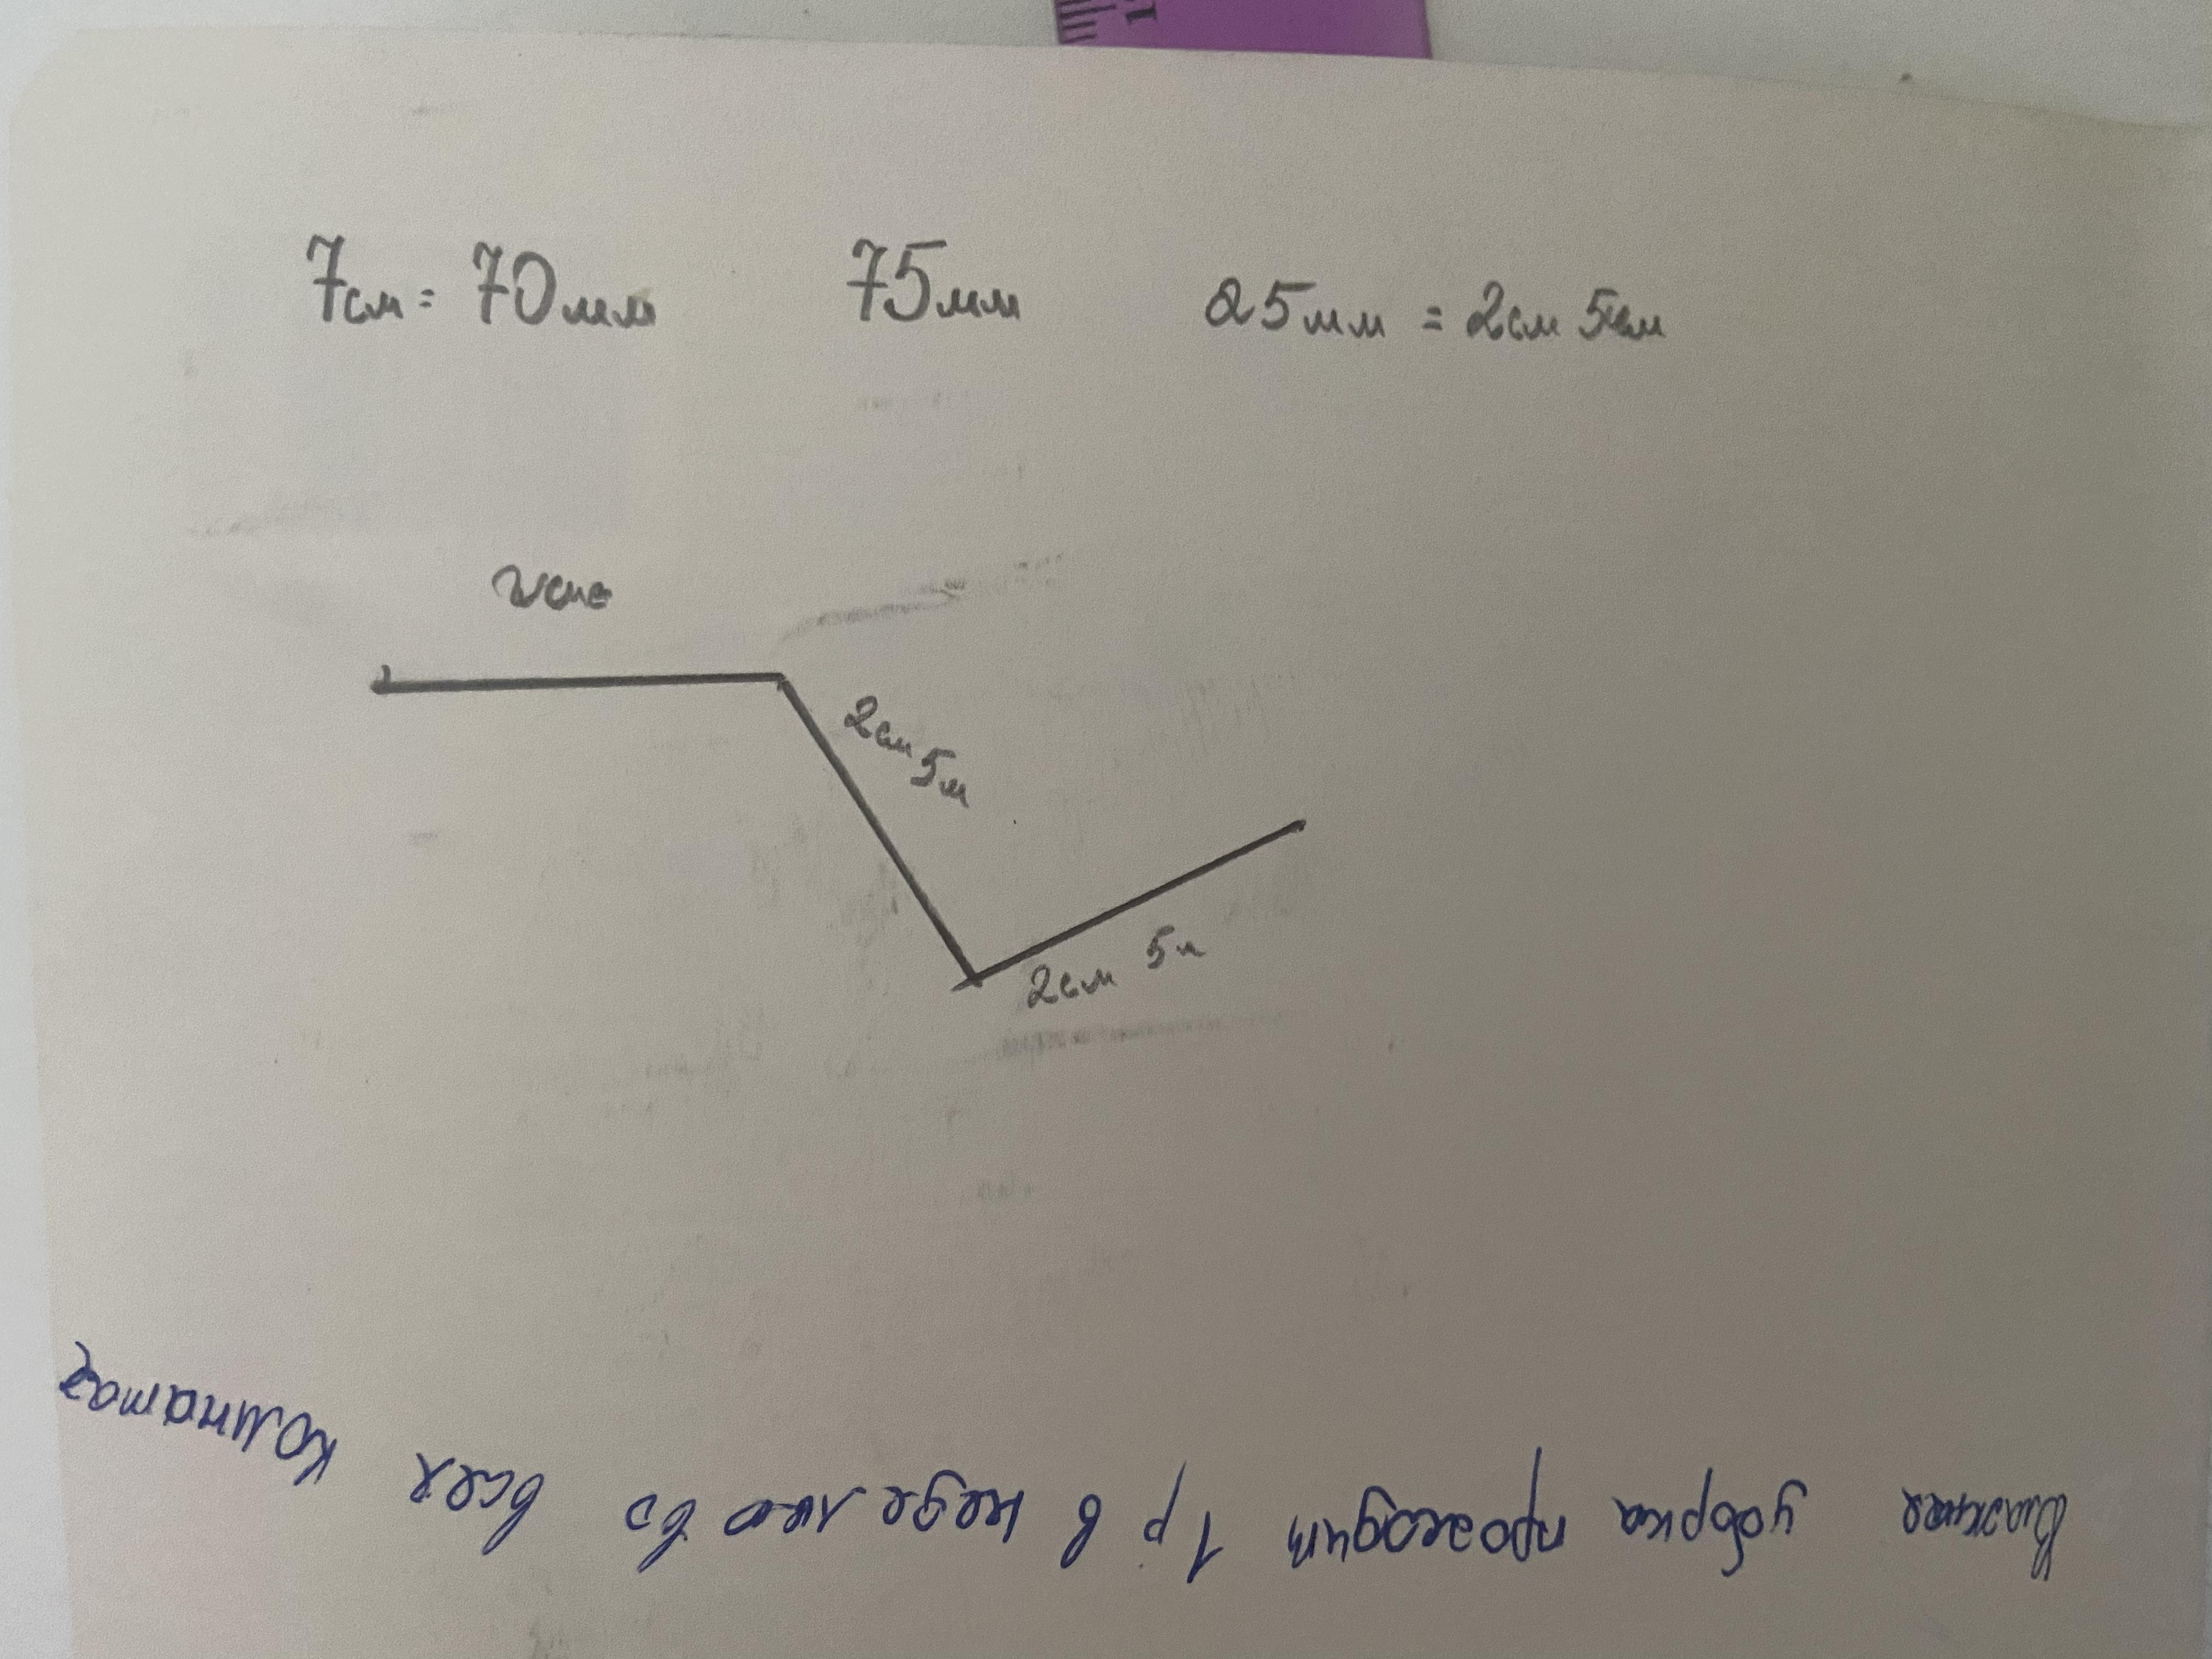 7см = 70мм 75мм 25мм = 2см 5мм
2см 5м
2см 5м
Влажная уборка проходит 1р в неделю во всех комнатах